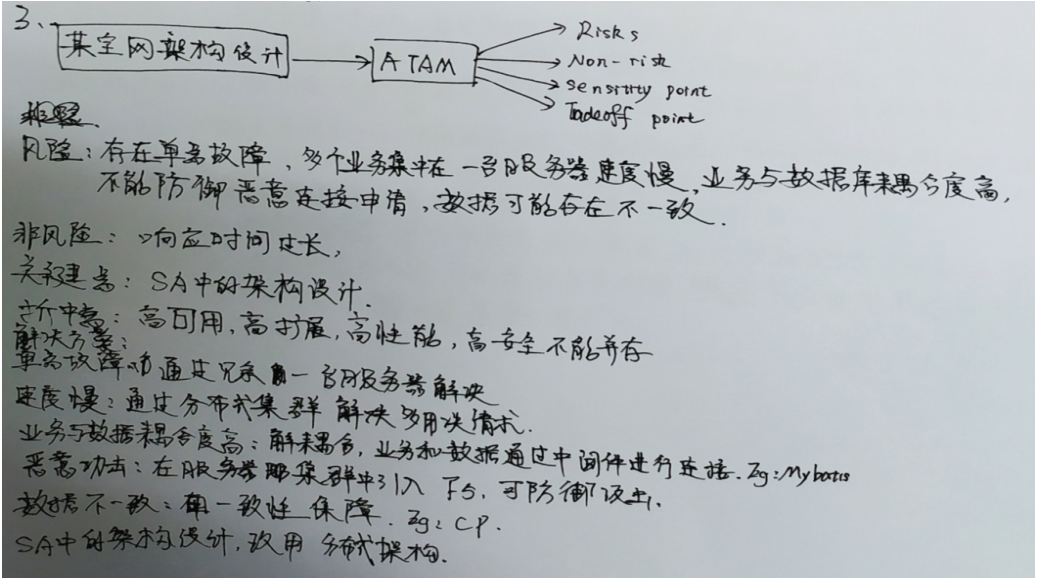 3、
某宝网架构设计
ATAM
Risks
Non-risk
sensitity point
Tadeoff point
风险：存在单点故障，多个业务集中在一台服务器速度慢，业务与数据库耦合度高，
不能防御恶意连接申请，数据可能存在不一致．
非风险：响应时间过长，
关键点：SA中的架构设计．
折中点：高可用，高扩展，高性能，高安全不能并存
解决方案：
单点故障 通过冗余 一台服务器解决
速度慢：通过分布式集群解决多用决请求．
业务与数据耦合度高：解耦合，业务和数据通过中间件进行连接．Eg：Mybatis
恶意功击：在服务器 集群中引入 F5，可防御 击．
数据不一致： 一致性保障．Eg：CP．
SA中的架构设计，改用 分布式架构．